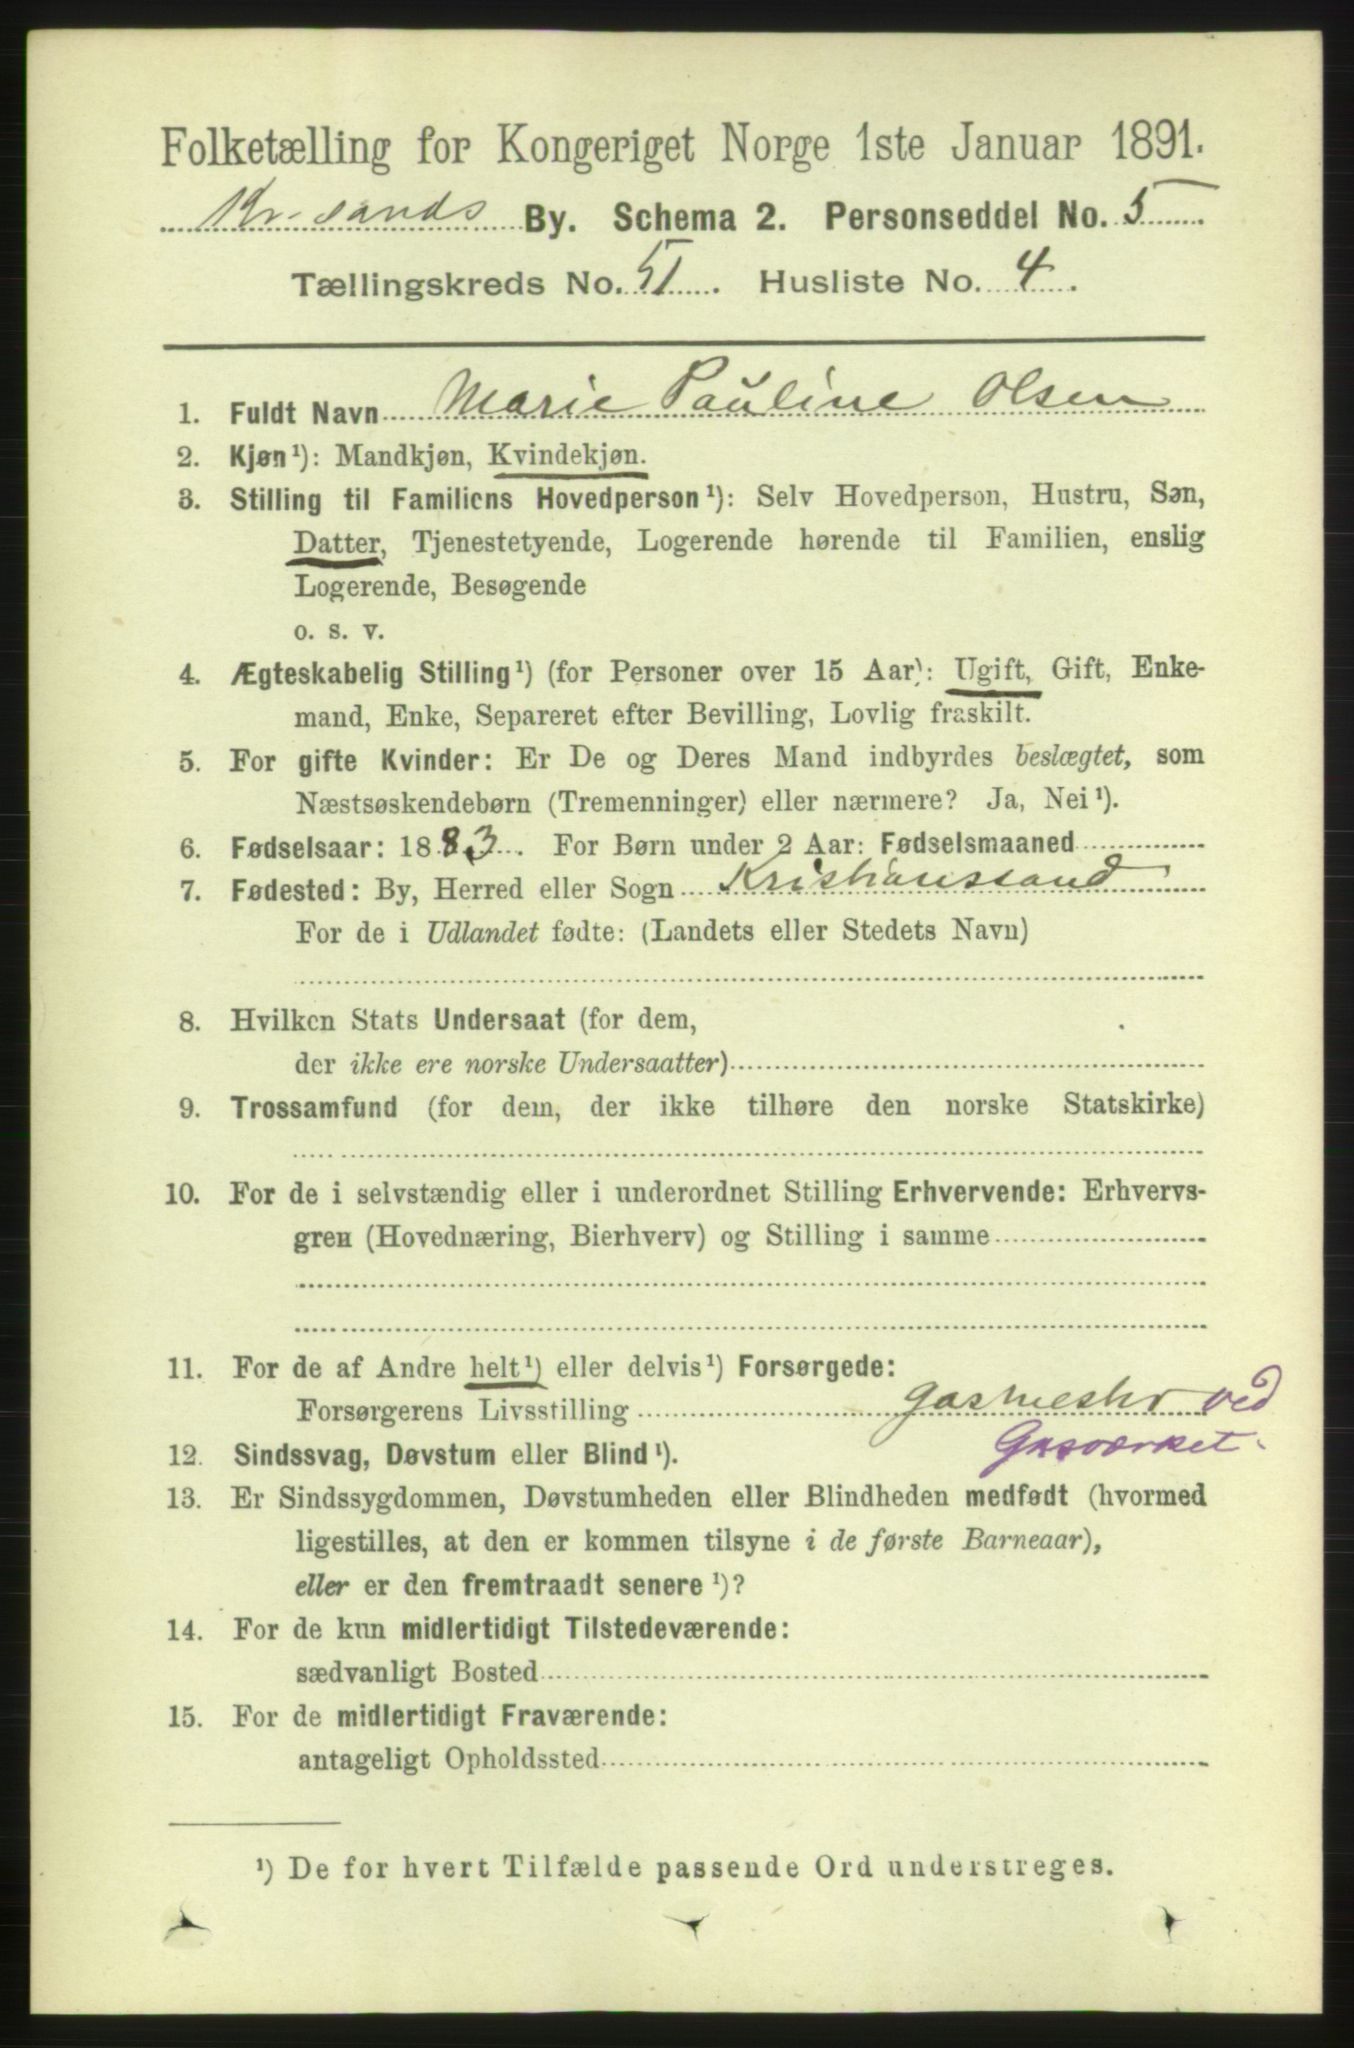 Folketælling for Kongeriget Norge 1ste Januar 1891.
Kr-sands By. Schema 2. Personseddel No. 5
Tællingskreds No. 51. Husliste No. 4.
1. Fuldt Navn Marie Pauline Olsen
2. Kjøn¹): Mandkjøn, Kvindekjøn.
3. Stilling til Familiens Hovedperson¹): Selv Hovedperson, Hustru, Søn,
Datter, Tjenestetyende, Logerende hørende til Familien, enslig
Logerende, Besøgende
o. s. v.
4. Ægteskabelig Stilling¹) (for Personer over 15 Aar): Ugift, Gift, Enke-
mand, Enke, Separeret efter Bevilling, Lovlig fraskilt.
5. For gifte Kvinder: Er De og Deres Mand indbyrdes beslægtet, som
Næstsøskendebørn (Tremenninger) eller nærmere? Ja, Nei¹).
6. Fødselsaar: 1883. For Børn under 2 Aar: Fødselsmaaned
7. Fødested: By, Herred eller Sogn Kristianssand
For de i Udlandet fødte: (Landets eller Stedets Navn)
8. Hvilken Stats Undersaat (for dem,
der ikke ere norske Undersaatter)
9. Trossamfund (for dem, der ikke tilhøre den norske Statskirke)
10. For de i selvstændig eller i underordnet Stilling Erhvervende: Erhvervs-
gren (Hovednæring, Bierhverv) og Stilling i samme
11. For de af Andre helt¹) eller delvis¹) Forsørgede:
Forsørgerens Livsstilling gasmester ved
Gasværket.
12. Sindssvag, Døvstum eller Blind¹).
13. Er Sindssygdommen, Døvstumheden eller Blindheden medfødt (hvormed
ligestilles, at den er kommen tilsyne i de første Barneaar),
eller er den fremtraadt senere¹)?
14. For de kun midlertidigt Tilstedeværende:
sædvanligt Bosted
15. For de midlertidigt Fraværende:
antageligt Opholdssted
¹) De for hvert Tilfælde passende Ord understreges.